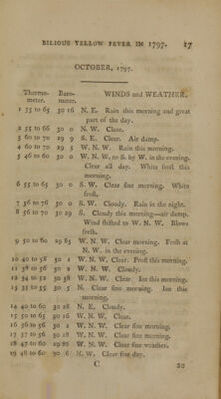 BILIOUS YELLOW FEVER IN 1797. 17
OCTOBER, 1797.
Thermo- Baro- WINDS and WEATHER.
meter. meter.
1 55 to 65 30 16 N. E. Rain this morning and great
part of the day.
2 55 to 66 30 0 N. W. Clear.
3 60 to 70 29 9 S. E. Clear. Air damp.
4 60 to 70 29 5 W. N. W. Rain this morning.
5 46 to 60 30 0 W. N. W. to S. by W. in the evening.
Clear all day. White frost this
morning.
6 55 to 65 30 0 S. W. Clear fine morning. White
frost.
7 56 to 76 30 0 S. W. Cloudy. Rain in the night.
8 56 to 70 30 29 S. Cloudy this morning—air damp.
Wind shifted to W. N. W. Blows
fresh.
9 50 to 60 29 85 W. N. W. Clear morning. Frost at
N. W. in the evening.
10 40 to 58 30 4 W. N. W. Clear. Frost this morning.
11 38 to 56 30 2 W. N. W. Cloudy.
12 34 to 52 30 38 W. N. W. Clear. Ice this morning.
13 35 to 55 30 5 N. Clear fine morning. Ice this
morning.
14 40 to 60 30 28 N. E. Cloudy.
15 50 to 65 30 16 W. N. W. Clear.
16 56 to 56 30 2 W. N. W. Clear fine morning.
17 36 to 56 30 28 W. N. W. Clear fine morning.
18 47 to 60 29 85 W. N. W. Clear fine weather.
19 48 to 60 30 6 N. W. Clear fine day.
C 20